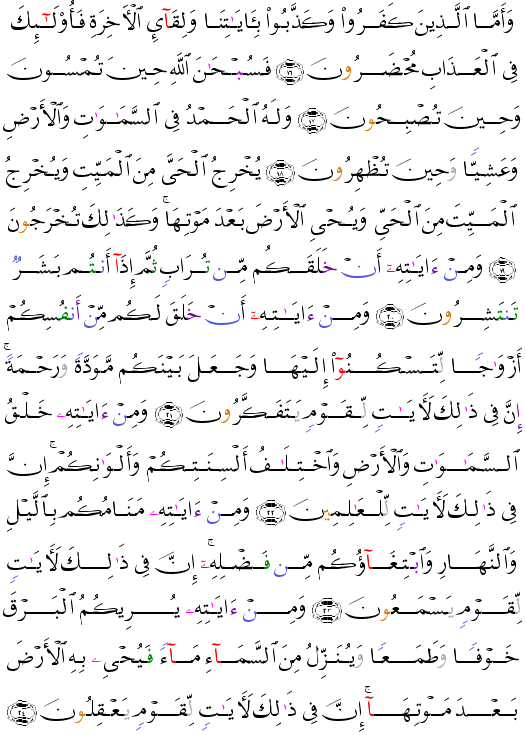 وَأَمَّا ٱلَّذِينَ كَفَرُوا۟ وَكَذَّبُوا۟ بِـَٔايَـٰتِنَا وَلِقَآئِ ٱلْـَٔاخِرَةِ فَأُو۟لَـٰٓئِكَ
فِى ٱلْعَذَابِ مُحْضَرُونَ ۝١٦ فَسُبْحَـٰنَ ٱللَّهِ حِينَ تُمْسُونَ
وَحِينَ تُصْبِحُونَ ۝١٧ وَلَهُ ٱلْحَمْدُ فِى ٱلسَّمَـٰوَٰتِ وَٱلْأَرْضِ
وَعَشِيًّا وَحِينَ تُظْهِرُونَ ۝١٨ يُخْرِجُ ٱلْحَىَّ مِنَ ٱلْمَيِّتِ وَيُخْرِجُ
ٱلْمَيِّتَ مِنَ ٱلْحَىِّ وَيُحْىِ ٱلْأَرْضَ بَعْدَ مَوْتِهَا ۚ وَكَذَٰلِكَ تُخْرَجُونَ
۝١٩ وَمِنْ ءَايَـٰتِهِۦٓ أَنْ خَلَقَكُم مِّن تُرَابٍ ثُمَّ إِذَآ أَنتُم بَشَرٌ
تَنتَشِرُونَ ۝٢٠ وَمِنْ ءَايَـٰتِهِۦٓ أَنْ خَلَقَ لَكُم مِّنْ أَنفُسِكُمْ
أَزْوَٰجًا لِّتَسْكُنُوٓا۟ إِلَيْهَا وَجَعَلَ بَيْنَكُم مَّوَدَّةً وَرَحْمَةً ۚ
إِنَّ فِى ذَٰلِكَ لَـَٔايَـٰتٍ لِّقَوْمٍ يَتَفَكَّرُونَ ۝٢١ وَمِنْ ءَايَـٰتِهِۦ خَلْقُ
ٱلسَّمَـٰوَٰتِ وَٱلْأَرْضِ وَٱخْتِلَـٰفُ أَلْسِنَتِكُمْ وَأَلْوَٰنِكُمْ ۚ إِنَّ
فِى ذَٰلِكَ لَـَٔايَـٰتٍ لِّلْعَـٰلِمِينَ ۝٢٢ وَمِنْ ءَايَـٰتِهِۦ مَنَامُكُم بِٱلَّيْلِ
وَٱلنَّهَارِ وَٱبْتِغَآؤُكُم مِّن فَضْلِهِۦٓ ۚ إِنَّ فِى ذَٰلِكَ لَـَٔايَـٰتٍ
لِّقَوْمٍ يَسْمَعُونَ ۝٢٣ وَمِنْ ءَايَـٰتِهِۦ يُرِيكُمُ ٱلْبَرْقَ
خَوْفًا وَطَمَعًا وَيُنَزِّلُ مِنَ ٱلسَّمَآءِ مَآءً فَيُحْىِۦ بِهِ ٱلْأَرْضَ
بَعْدَ مَوْتِهَآ ۚ إِنَّ فِى ذَٰلِكَ لَـَٔايَـٰتٍ لِّقَوْمٍ يَعْقِلُونَ ۝٢٤